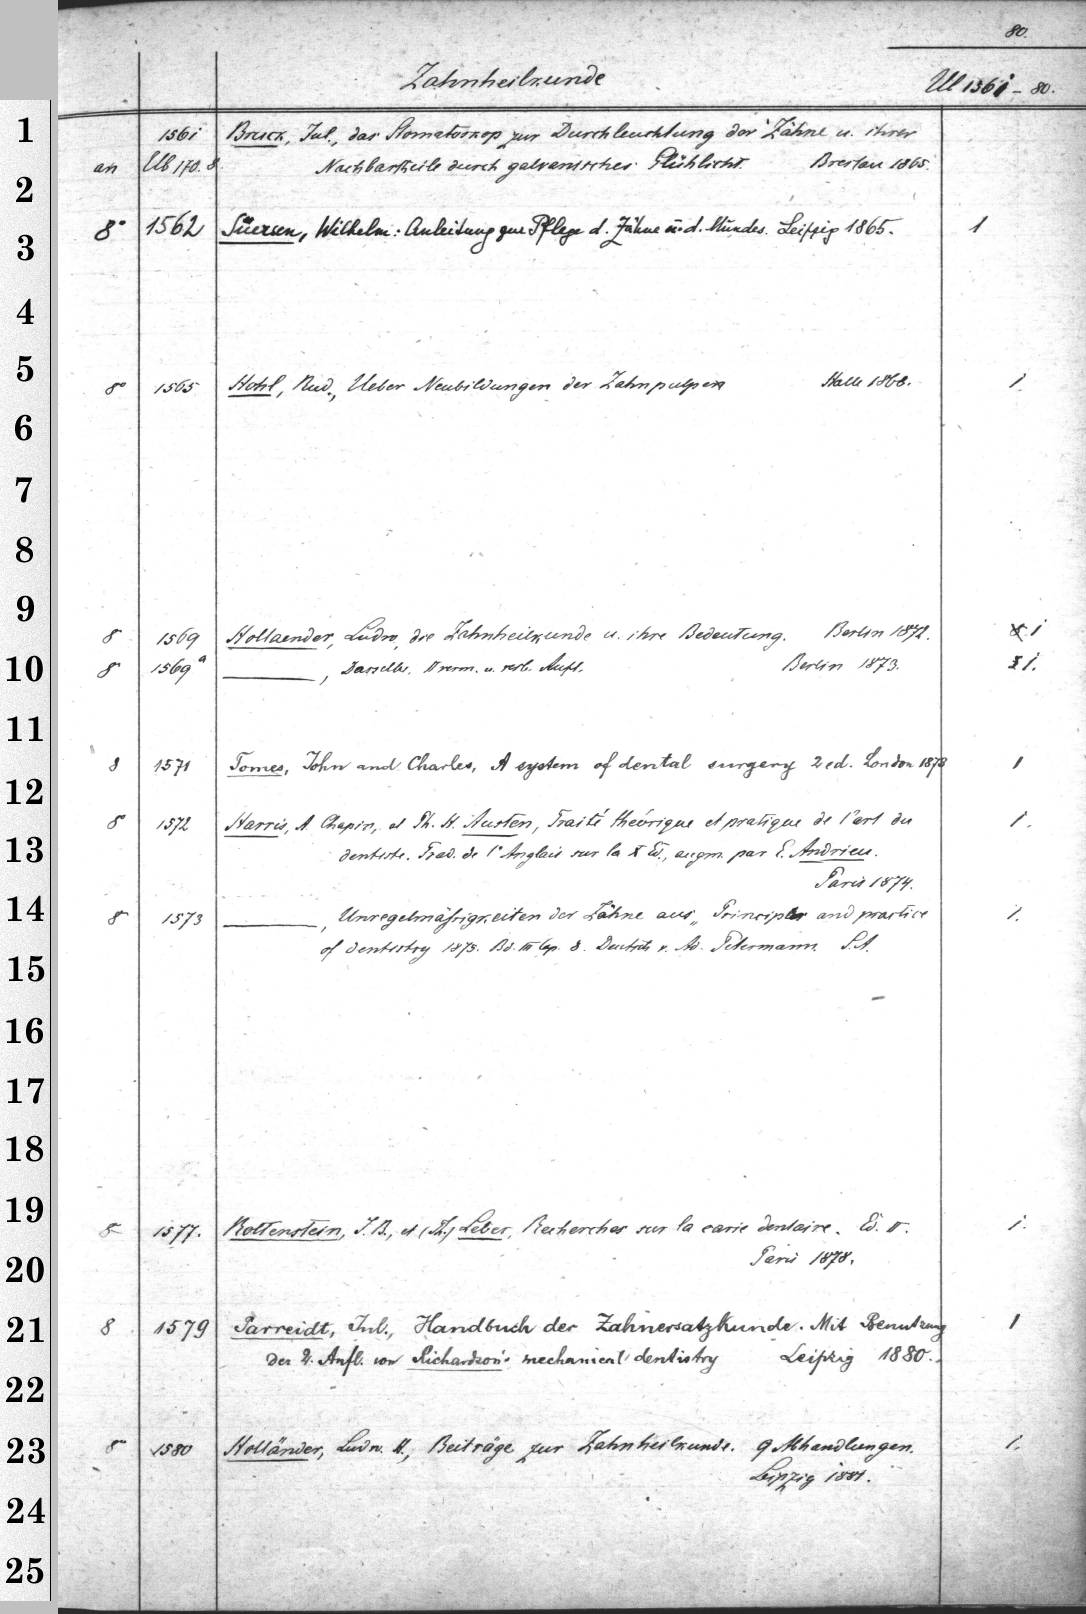 80.
Zahnheilkunde Ul 1561 - 80.
1 1561 Bruck, Jul., das Stomatoskop zur Durchleuchtung der Zähne u. ihrer
an Ub 170. 8. Nachbartheile durch galvanisches Glühlicht. Breslau 1865.
2
8° 1562 Süersen, Wilhelm: Anleitung zur Pflege d. Zähne u. d. Mundes. Leipzig 1865. 1
3
4
5
8° 1565 Hohl, Rud., Ueber Neubildungen der Zahnpulpen Halle 1868. 1.
6
7
8
9
8 1569 Hollaender, Ludw., die Zahnheilkunde u. ihre Bedeutung. Berlin 1872. 1
10 8 1569a ———, Dasselbe. II verm. u. verb. Aufl. Berlin 1873. 1.
11
8 1571 Tomes, John and Charles, A system of dental surgery 2 ed. London 1873 1
12
8 1572 Harris, A. Chapin, et Ph. H. Austen, Traité théorique et pratique de l'art du 1.
13 dentiste. Trad. de l'Anglais sur la X Ed., augm. par E. Andrieu.
Paris 1874.
14 8 1573 ———, Unregelmäßigkeiten der Zähne aus „ Principles and practice 1.
of dentistry 1873. Bd. III Cap. 8. Deutsch v. Ad. Petermann. S.A.
15
16
17
18
19
8 1577. Rottenstein, J. B., et (Th.) Leber, Recherches sur la carie dentaire. Ed. II. 1.
20 Paris 1878.
21 8 1579 Parreidt, Jul., Handbuch der Zahnersatzkunde. Mit Benutzung 1
der 2. Aufl. von Richardson's mechanical dentistry Leipzig 1880.
22
23 8 1580 Holländer, Ludw. H., Beiträge zur Zahnheilkunde. 9 Abhandlungen. 1.
Leipzig 1881.
24
25